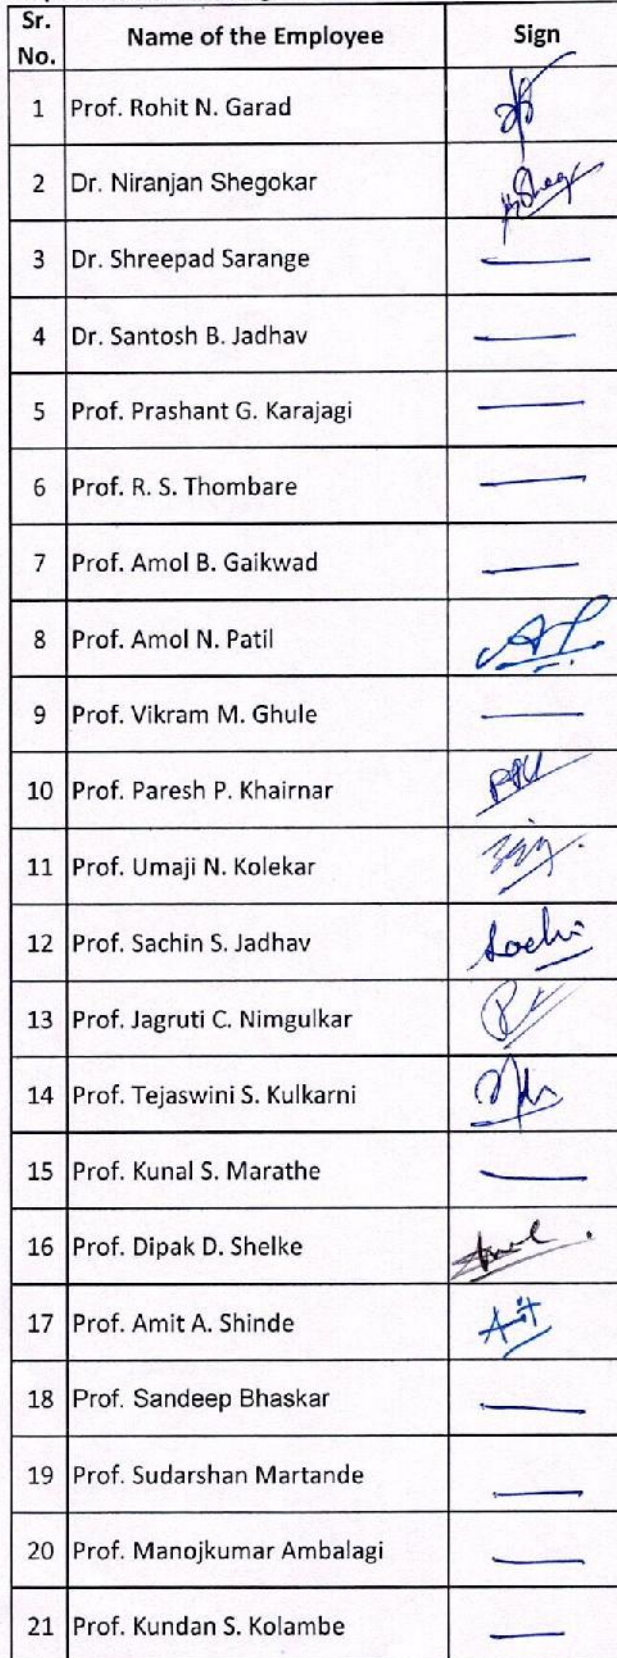 Sr. No. Name of the Employee Sign
1 Prof. Rohit N. Garad
2 Dr. Niranjan Shegokar
3 Dr. Shreepad Sarange —
4 Dr. Santosh B. Jadhav —
5 Prof. Prashant G. Karajagi —
6 Prof. R. S. Thombare —
7 Prof. Amol B. Gaikwad —
8 Prof. Amol N. Patil
9 Prof. Vikram M. Ghule —
10 Prof. Paresh P. Khairnar
11 Prof. Umaji N. Kolekar
12 Prof. Sachin S. Jadhav
13 Prof. Jagruti C. Nimgulkar
14 Prof. Tejaswini S. Kulkarni
15 Prof. Kunal S. Marathe —
16 Prof. Dipak D. Shelke
17 Prof. Amit A. Shinde Amit
18 Prof. Sandeep Bhaskar —
19 Prof. Sudarshan Martande —
20 Prof. Manojkumar Ambalagi —
21 Prof. Kundan S. Kolambe —